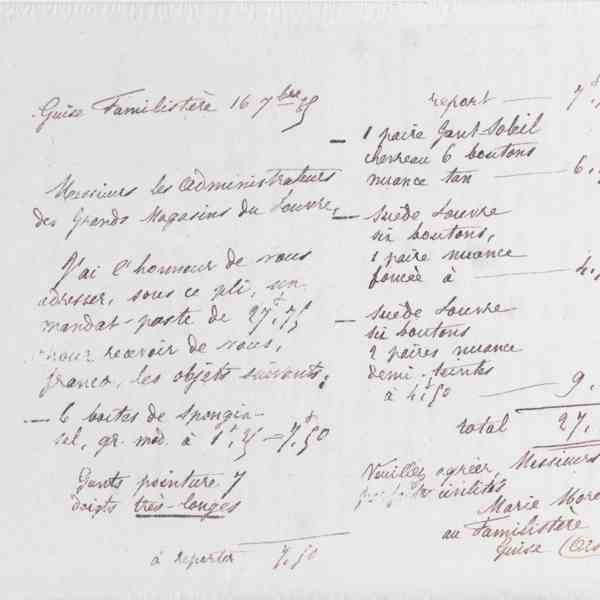 Guise Familistère 16 7bre 85
Messieurs les Administrateurs
des Grands Magasins du Louvre,
J'ai l'honneur de vous
adresser, sous ce pli, un
mandat-poste de 27f,75
pour recevoir de vous,
franco, les objets suivants:
— 6 boites de Spongia-
sel, gr. mod. à 1f,25 = 7f,50
Gants pointure 7
doigts très-longs
à reporter 7,50
report — 7f
— 1 paire Gant-Soleil
chevreau 6 boutons
nuance tan — 6,
— Suède Louvre
six boutons,
1 paire nuance
foncée à — 4,
— Suède Louvre
six boutons
2 paires nuance
demi-teintes
à 4f,50 — 9,
Total 27,
Veuillez agréer, Messieurs
civilités
Marie More
au Familistère
Guise